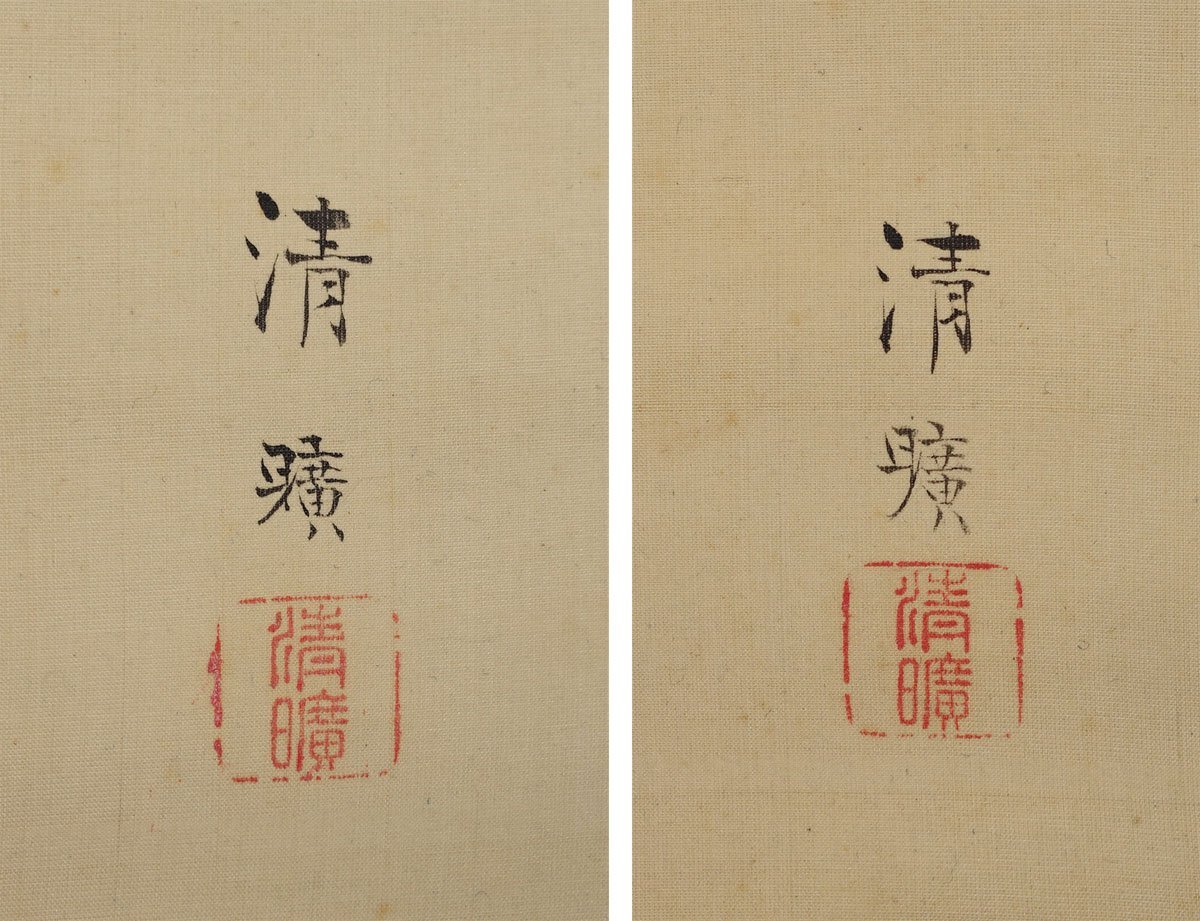 清
曠
清
曠
清
曠
清
曠